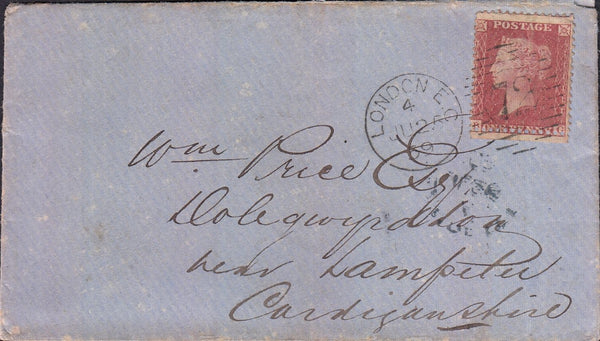 POSTAGE
ONE PENNY
LONDON E.C
4
72
Wm Price Esq
Dolegwyrddon
near Lampeter
Cardiganshire